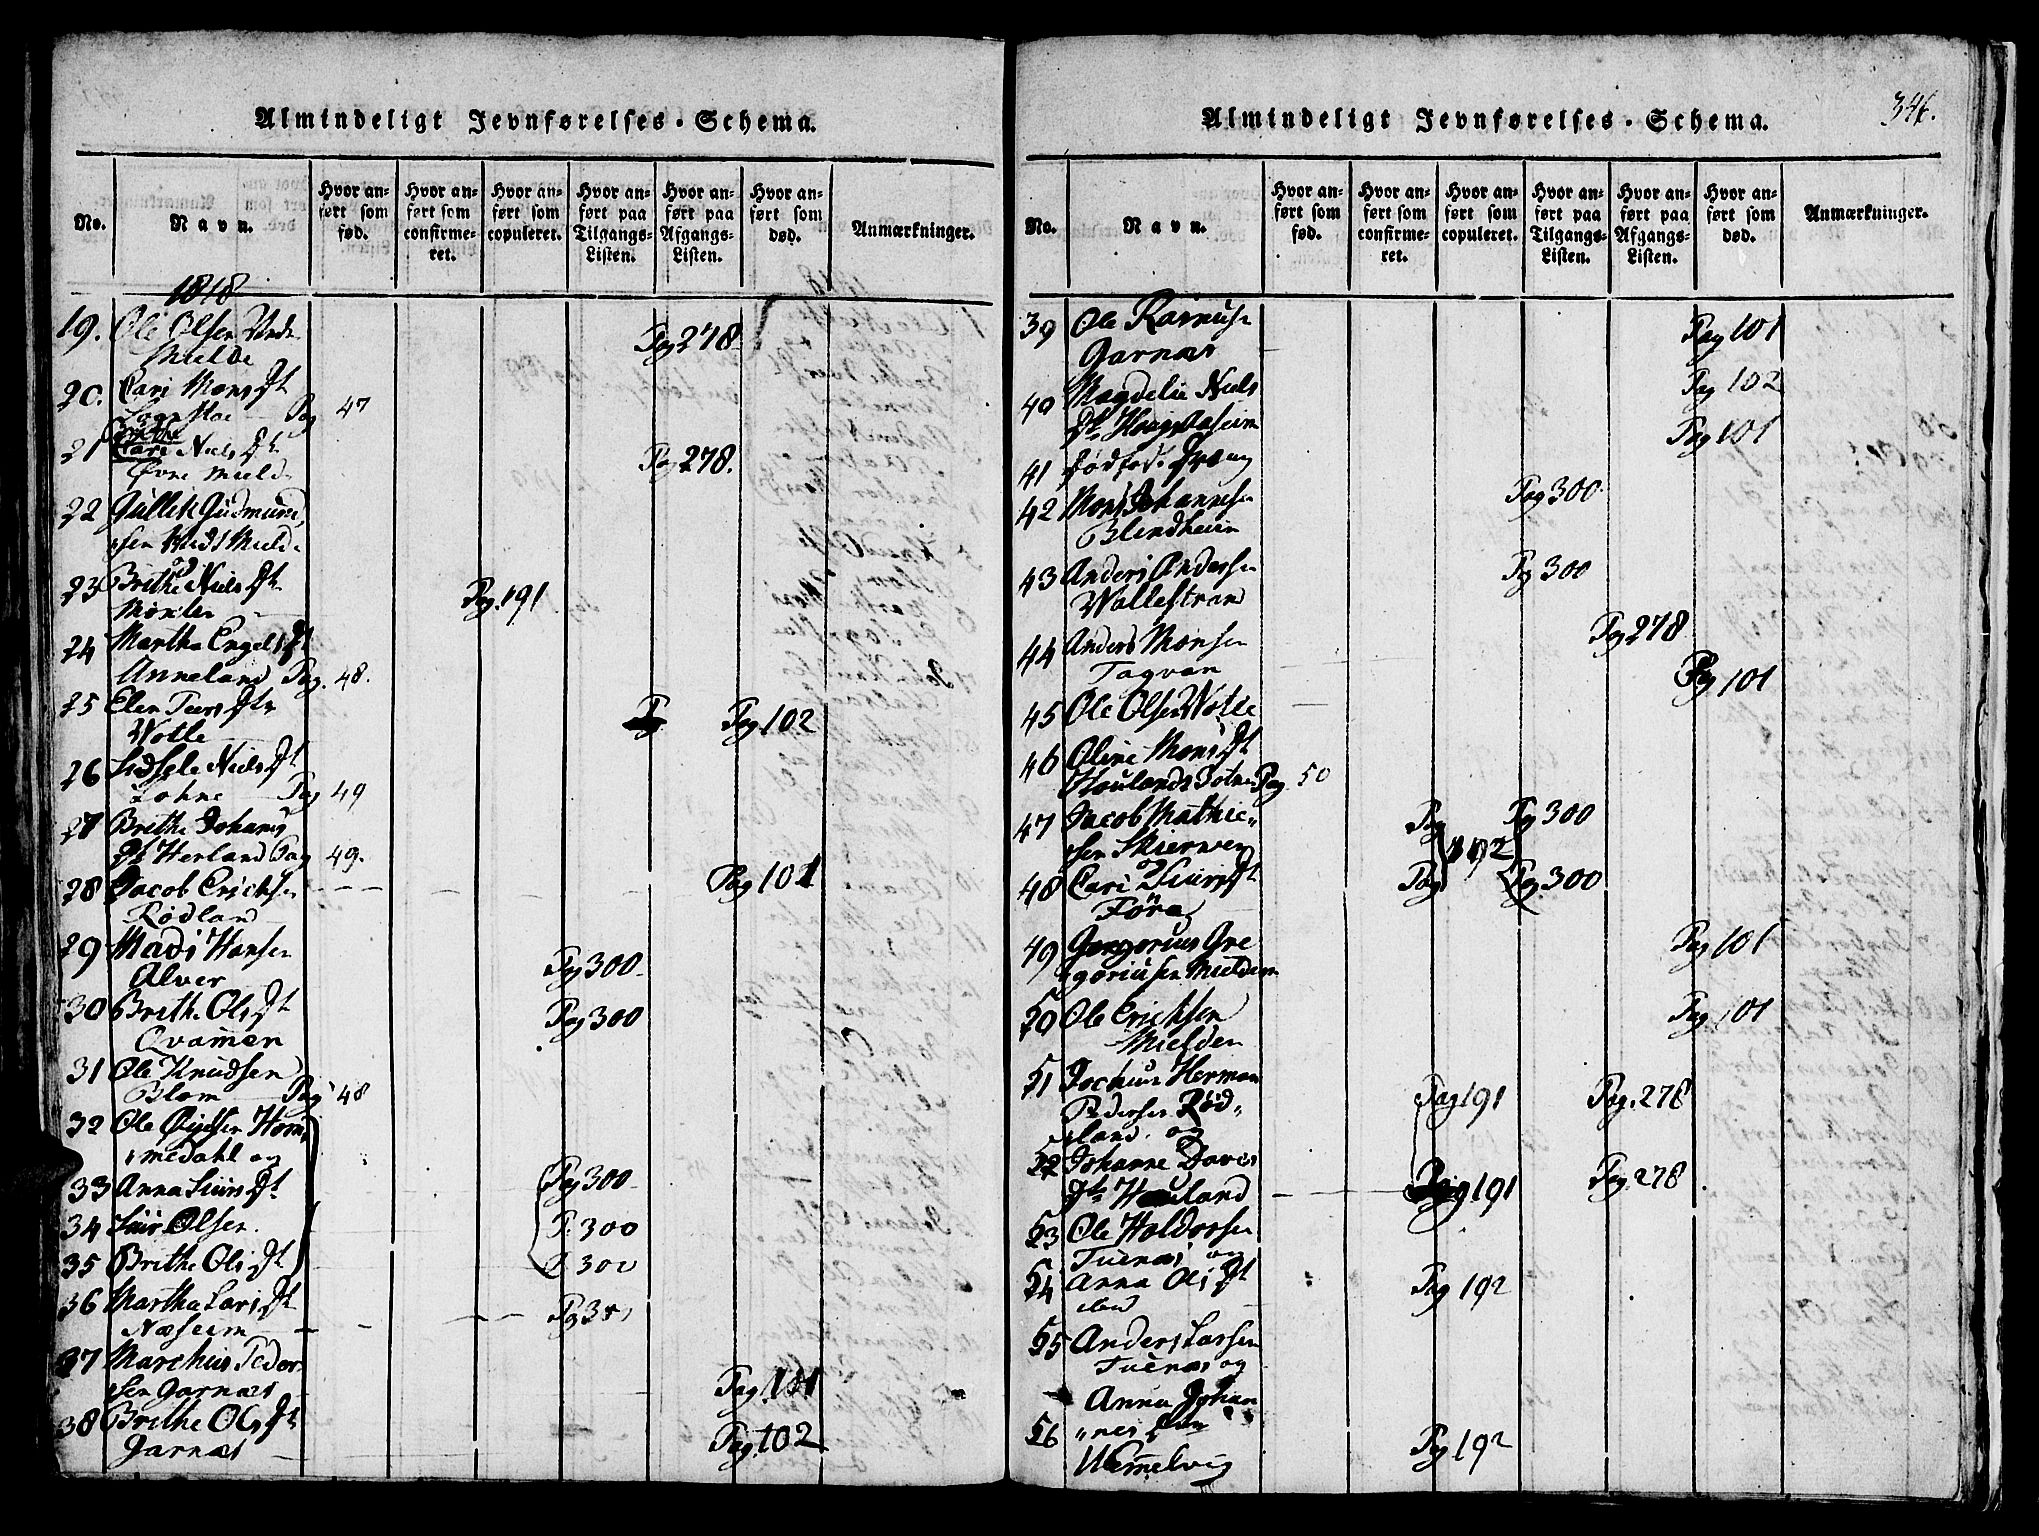 Almindeligt Jevnførelses-Schema.
No. Navn. Hvor anført som fød. Hvor anført som confirmeret. Hvor anført som copuleret. Hvor anført paa Tilgangs-Listen. Hvor anført paa Afgangs-Listen. Hvor anført som død. Anmærkninger.
1818
19. Ole Olsen
Mielde Pag 278
20. Cari Mons Dt
Pag 47
21 Cari Niels Dt
Øvre Mield Pag 278.
22 Gullik Gudmund
sen Mielde
23 Brithe Niels Dt Pag. 191
24 Martha Engels Dt
Anneland Pag. 48.
25 Elen Dtr
Wolle Pag 102
26 Sidsele Niels Dt
Lohne Pag 49
27 Brithe Johans
Dt Herland Pag 49.
28 Jacob Erichsen
Rødland Pag 101
29 Mads Hansen
Alver Pag 300
30 Brithe Ols Dt
Qvamen Pag 300
31 Ole Knudsen
Blom Pag 48
32 Ole Hom
medahl og
33 Anna Siurs Dt Pag 300
34 Siur Olsen P. 300
35 Brithe Ols Dt P 300
36 Martha Lars Dt
Næseim
37 Marchus Peder
sen Garnæs Pag. 101
38 Brithe Ols Dt
Garnæs Pag. 102
Almindeligt Jevnførelses-Schema. 346.
No. Navn. Hvor anført som fød. Hvor anført som confirmeret. Hvor anført som copuleret. Hvor anført paa Tilgangs-Listen. Hvor anført paa Afgangs-Listen. Hvor anført som død. Anmærkninger.
39 Ole Rasmuss
Garnæs Pag 101
40 Magdeli Niels
Dt Pag 102
41 Dødfød Pag 101
42 Mons Johannesen
Blindheim Pag 300
43 Anders Andersen
Wallestrand Pag 300
44 Anders Monsen
Tagvam Pag 278
45 Ole Olsen Wolle Pag 101
46 Oline Mons Dt
Pag 50
47 Jacob Mathie„
sen Skierven Pag 192 Pag 300
48 Cari Siurs Dt
Pag Pag. 300
49 Gregorius Gre
goriusen Mielden Pag 101
50 Ole Erichsen
Mielden Pag 101
51 Jochum Herman
Pedersen Rød„
land og Pag 191 Pag. 278
52 Johanne Davids
Dtr Houland Pag 191 Pag. 278
53 Ole Haldorsen
Tuenæs og
54 Anna Ols Dt
Pag 192
55 Anders Larsen
Tuenæs og
Anna Johan
56 „nes
Pag 192